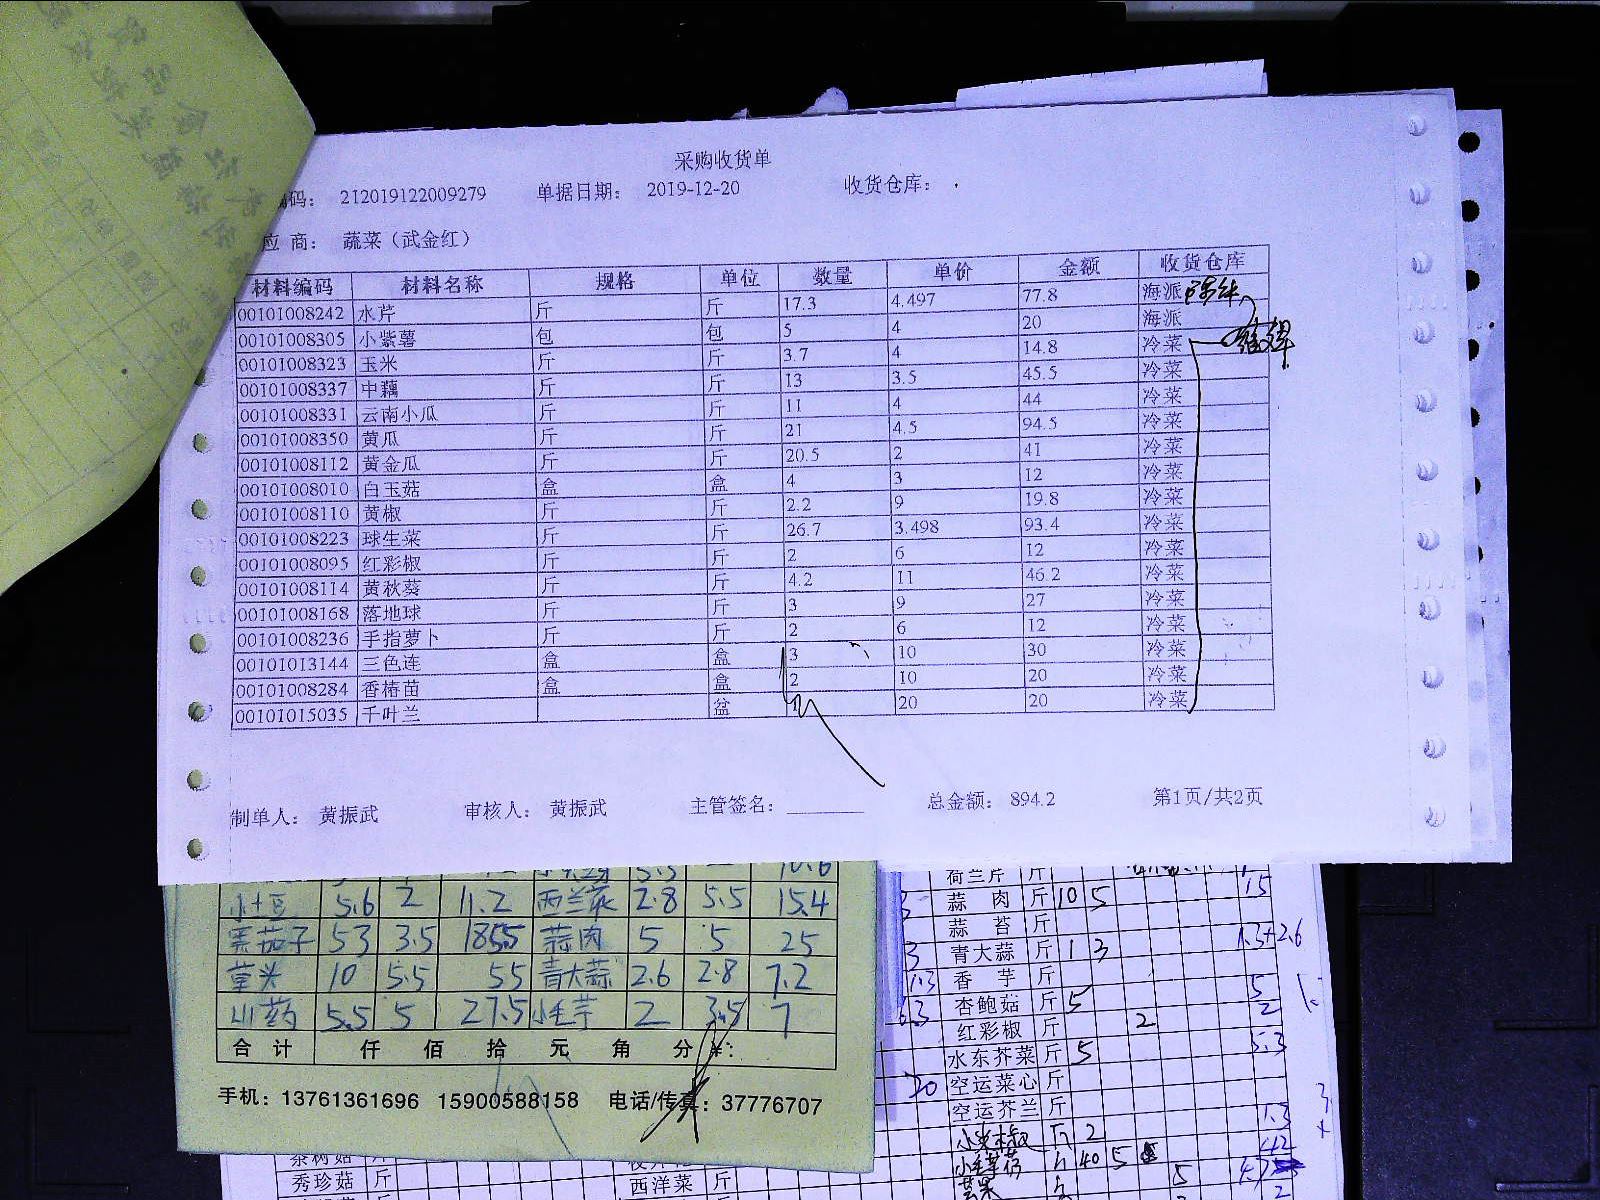 采购收货单
编码： 212019122009279 单据日期： 2019-12-20 收货仓库：
应 商： 蔬菜（武金红）
材料编码 材料名称 规格 单位 数量 单价 金额 收货仓库
00101008242 水芹 斤 斤 17.3 4.497 77.8 海派
00101008305 小紫薯 包 包 5 4 20 海派
00101008323 玉米 斤 斤 3.7 4 14.8 冷菜
00101008337 中藕 斤 斤 13 3.5 45.5 冷菜
00101008331 云南小瓜 斤 斤 11 4 44 冷菜
00101008350 黄瓜 斤 斤 21 4.5 94.5 冷菜
00101008112 黄金瓜 斤 斤 20.5 2 41 冷菜
00101008010 白玉菇 盒 盒 4 3 12 冷菜
00101008110 黄椒 斤 斤 2.2 9 19.8 冷菜
00101008223 球生菜 斤 斤 26.7 3.498 93.4 冷菜
00101008095 红彩椒 斤 斤 2 6 12 冷菜
00101008114 黄秋葵 斤 斤 4.2 11 46.2 冷菜
00101008168 落地球 斤 斤 3 9 27 冷菜
00101008236 手指萝卜 斤 斤 2 6 12 冷菜
00101013144 三色连 盒 盒 3 10 30 冷菜
00101008284 香椿苗 盒 盒 2 10 20 冷菜
00101015035 千叶兰 盆 1 20 20 冷菜
制单人： 黄振武 审核人： 黄振武 主管签名： 总金额： 894.2 第1页/共2页
小土豆 5.6 2 11.2 西兰花 2.8 5.5 15.4
茄子 53 3.5 185.5 蒜肉 5 5 25
草头 10 5.5 55 青大蒜 2.6 2.8 7.2
山药 5.5 5 27.5 小毛芋 2 3.5 7
合 计 仟 佰 拾 元 角 分 ¥：
手机：13761361696 15900588158 电话/传真：37776707
荷兰斤 斤
蒜 肉 斤 10 5 15
蒜 苔 斤
青大蒜 斤 1 3 1.3+2.6
香 芋 斤
杏鲍菇 斤 5 5
红彩椒 斤 2 2
水东芥菜 斤 5 5.3
空运菜心 斤
空运芥兰 斤
小米椒 斤 2 1.3
小毛芋艿 斤 40 5 42
茶树菇 斤
秀珍菇 斤
西洋菜 斤